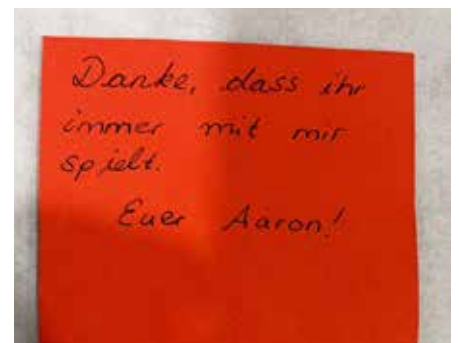 Danke, dass ihr
immer mit mir
spielt.
Euer Aaron!